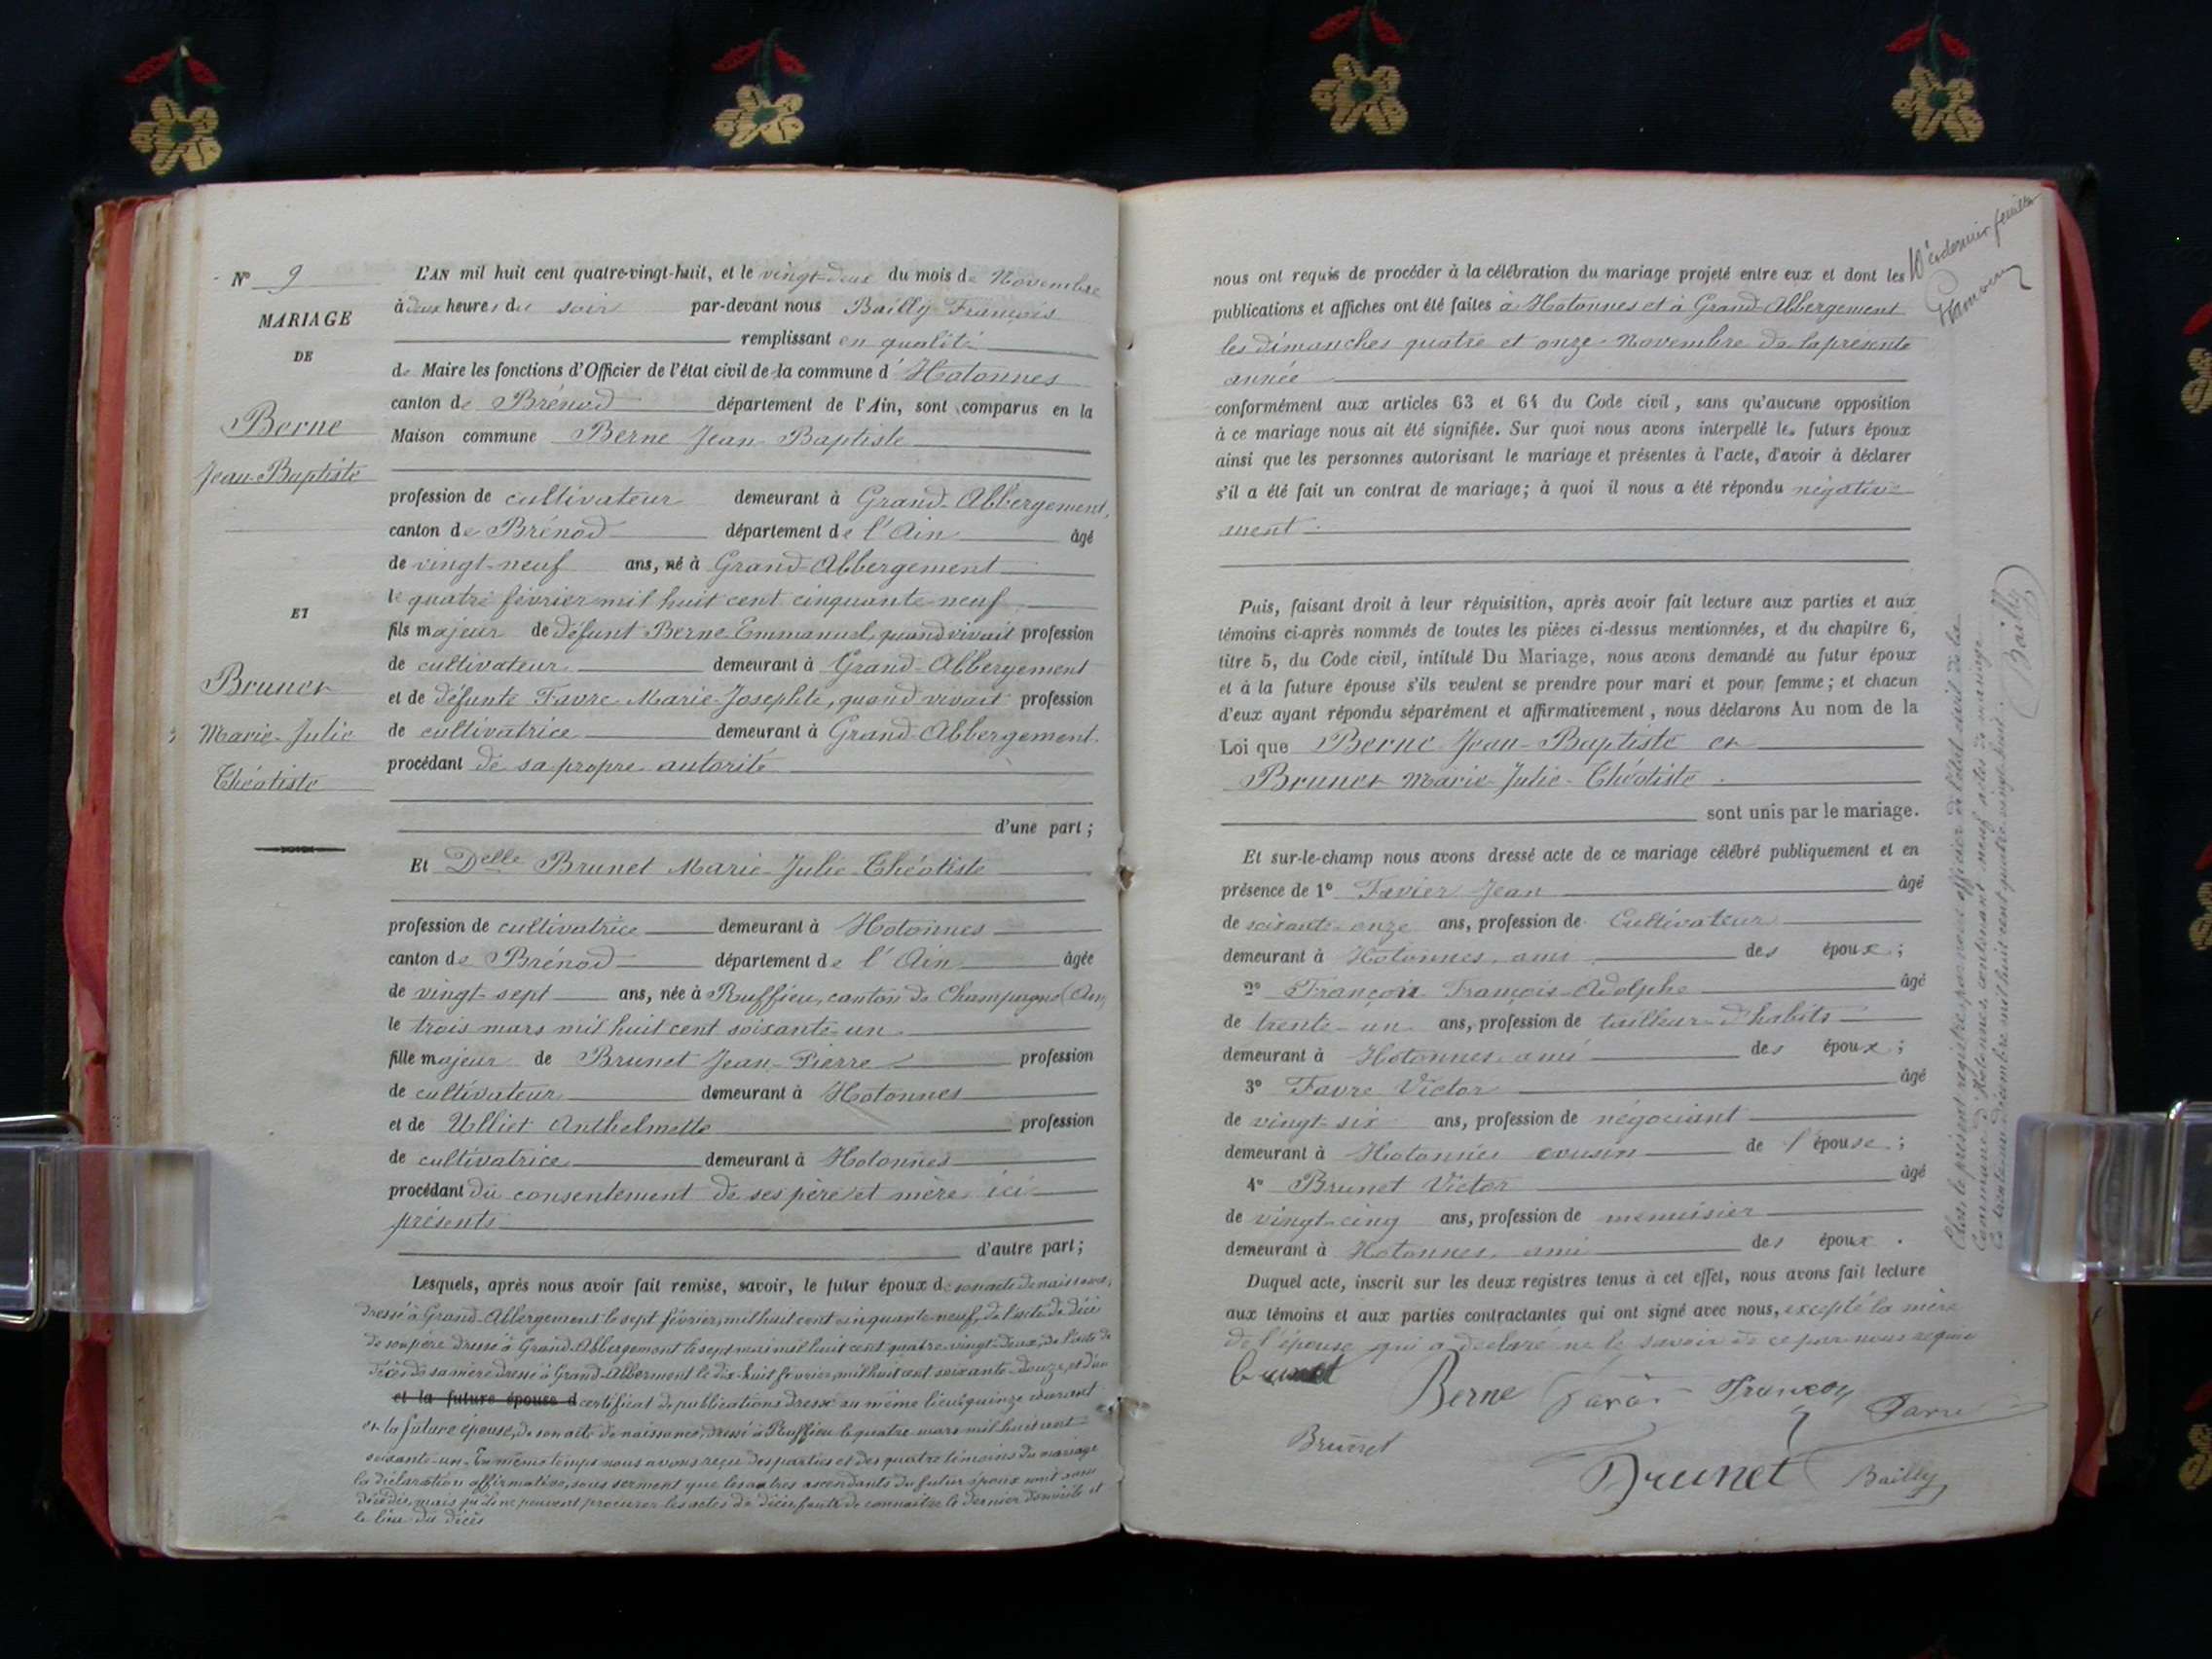 N° 9
MARIAGE
DE
Berne
Jean-Baptiste
ET
Brunet
Marie-Julie
Théotiste
L'AN mil huit cent quatre-vingt-huit, et le vingt-deux du mois de Novembre
à deux heures du soir par-devant nous Bailly François
remplissant en qualité
de Maire les fonctions d'Officier de l'état civil de la commune d'Hotonnes
canton de Brénod département de l'Ain, sont comparus en la
Maison commune Berne Jean-Baptiste
profession de cultivateur demeurant à Grand-Abbergement,
canton de Brénod département de l'Ain âgé
de vingt-neuf ans, né à Grand-Abbergement
le quatre février mil huit cent cinquante-neuf
fils majeur de défunt Berne Emmanuel, quand vivait profession
de cultivateur demeurant à Grand-Abbergement
et de défunte Favre Marie-Josephte, quand vivait profession
de cultivatrice demeurant à Grand-Abbergement.
procédant de sa propre autorité
d'une part;
Et Delle Brunet Marie-Julie-Théotiste
profession de cultivatrice demeurant à Hotonnes
canton de Brénod département de l'Ain âgée
de vingt-sept ans, née à Ruffieu, canton de Champagne (Ain)
le trois mars mil huit cent soixante-un
fille majeur de Brunet Jean-Pierre profession
de cultivateur demeurant à Hotonnes
et de Ulliet Anthelmette profession
de cultivatrice demeurant à Hotonnes
procédant du consentement de ses père et mère ici
présents
d'autre part;
Lesquels, après nous avoir fait remise, savoir, le futur époux de son acte de naissance,
dressé à Grand-Abbergement le sept février, mil huit cent cinquante-neuf, de l'acte de décès
de son père dressé à Grand-Abbergement le sept mars mil huit cent quatre-vingt-deux, de l'acte de
décès de sa mère dressé à Grand-Abberment le dix-huit février, mil huit cent soixante-douze, et d'un
et la future épouse d certificat de publications dressé au même lieu le quinze courant
et la future épouse, de son acte de naissance, dressé à Ruffieu le quatre mars mil huit cent
soixante-un. En même temps nous avons reçu des parties et des quatre témoins du mariage
la déclaration affirmative, sous serment que les autres ascendants du futur époux sont tous
décédés, mais qu'ils ne peuvent procurer les actes de décès faute de connaître le dernier domicile et
le lieu du décès
nous ont requis de procéder à la célébration du mariage projeté entre eux et dont les
publications et affiches ont été faites à Hotonnes et à Grand-Abbergement
les dimanches quatre et onze Novembre de la présente
année
conformément aux articles 63 et 64 du Code civil, sans qu'aucune opposition
à ce mariage nous ait été signifiée. Sur quoi nous avons interpellé les futurs époux
ainsi que les personnes autorisant le mariage et présentes à l'acte, d'avoir à déclarer
s'il a été fait un contrat de mariage; à quoi il nous a été répondu négative-
ment.
Puis, faisant droit à leur réquisition, après avoir fait lecture aux parties et aux
témoins ci-après nommés de toutes les pièces ci-dessus mentionnées, et du chapitre 6,
titre 5, du Code civil, intitulé Du Mariage, nous avons demandé au futur époux
et à la future épouse s'ils veulent se prendre pour mari et pour femme; et chacun
d'eux ayant répondu séparément et affirmativement, nous déclarons Au nom de la
Loi que Berne Jean-Baptiste et
Brunet Marie-Julie-Théotiste.
sont unis par le mariage.
Et sur-le-champ nous avons dressé acte de ce mariage célébré publiquement et en
présence de 1° Favier Jean âgé
de soixante-onze ans, profession de Cultivateur
demeurant à Hotonnes, ami des époux;
2° François-Adolphe âgé
de trente-un ans, profession de tailleur d'habits
demeurant à Hotonnes ami des époux;
3° Favre Victor âgé
de vingt-six ans, profession de négociant
demeurant à Hotonnes cousin de l'épouse;
4° Brunet Victor âgé
de vingt-cinq ans, profession de menuisier
demeurant à Hotonnes, ami des époux.
Duquel acte, inscrit sur les deux registres tenus à cet effet, nous avons fait lecture
aux témoins et aux parties contractantes qui ont signé avec nous, excepté la mère
de l'épouse qui a déclaré ne le savoir de ce par nous requise
Brunet
Berne
Favre
Brunet
Brunet
Bailly
Clos le présent registre par nous officier de l'état civil de la
Commune d'Hotonnes, contenant neuf actes de mariage
Le trente-un décembre mil huit cent quatre-vingt-huit.
Bailly